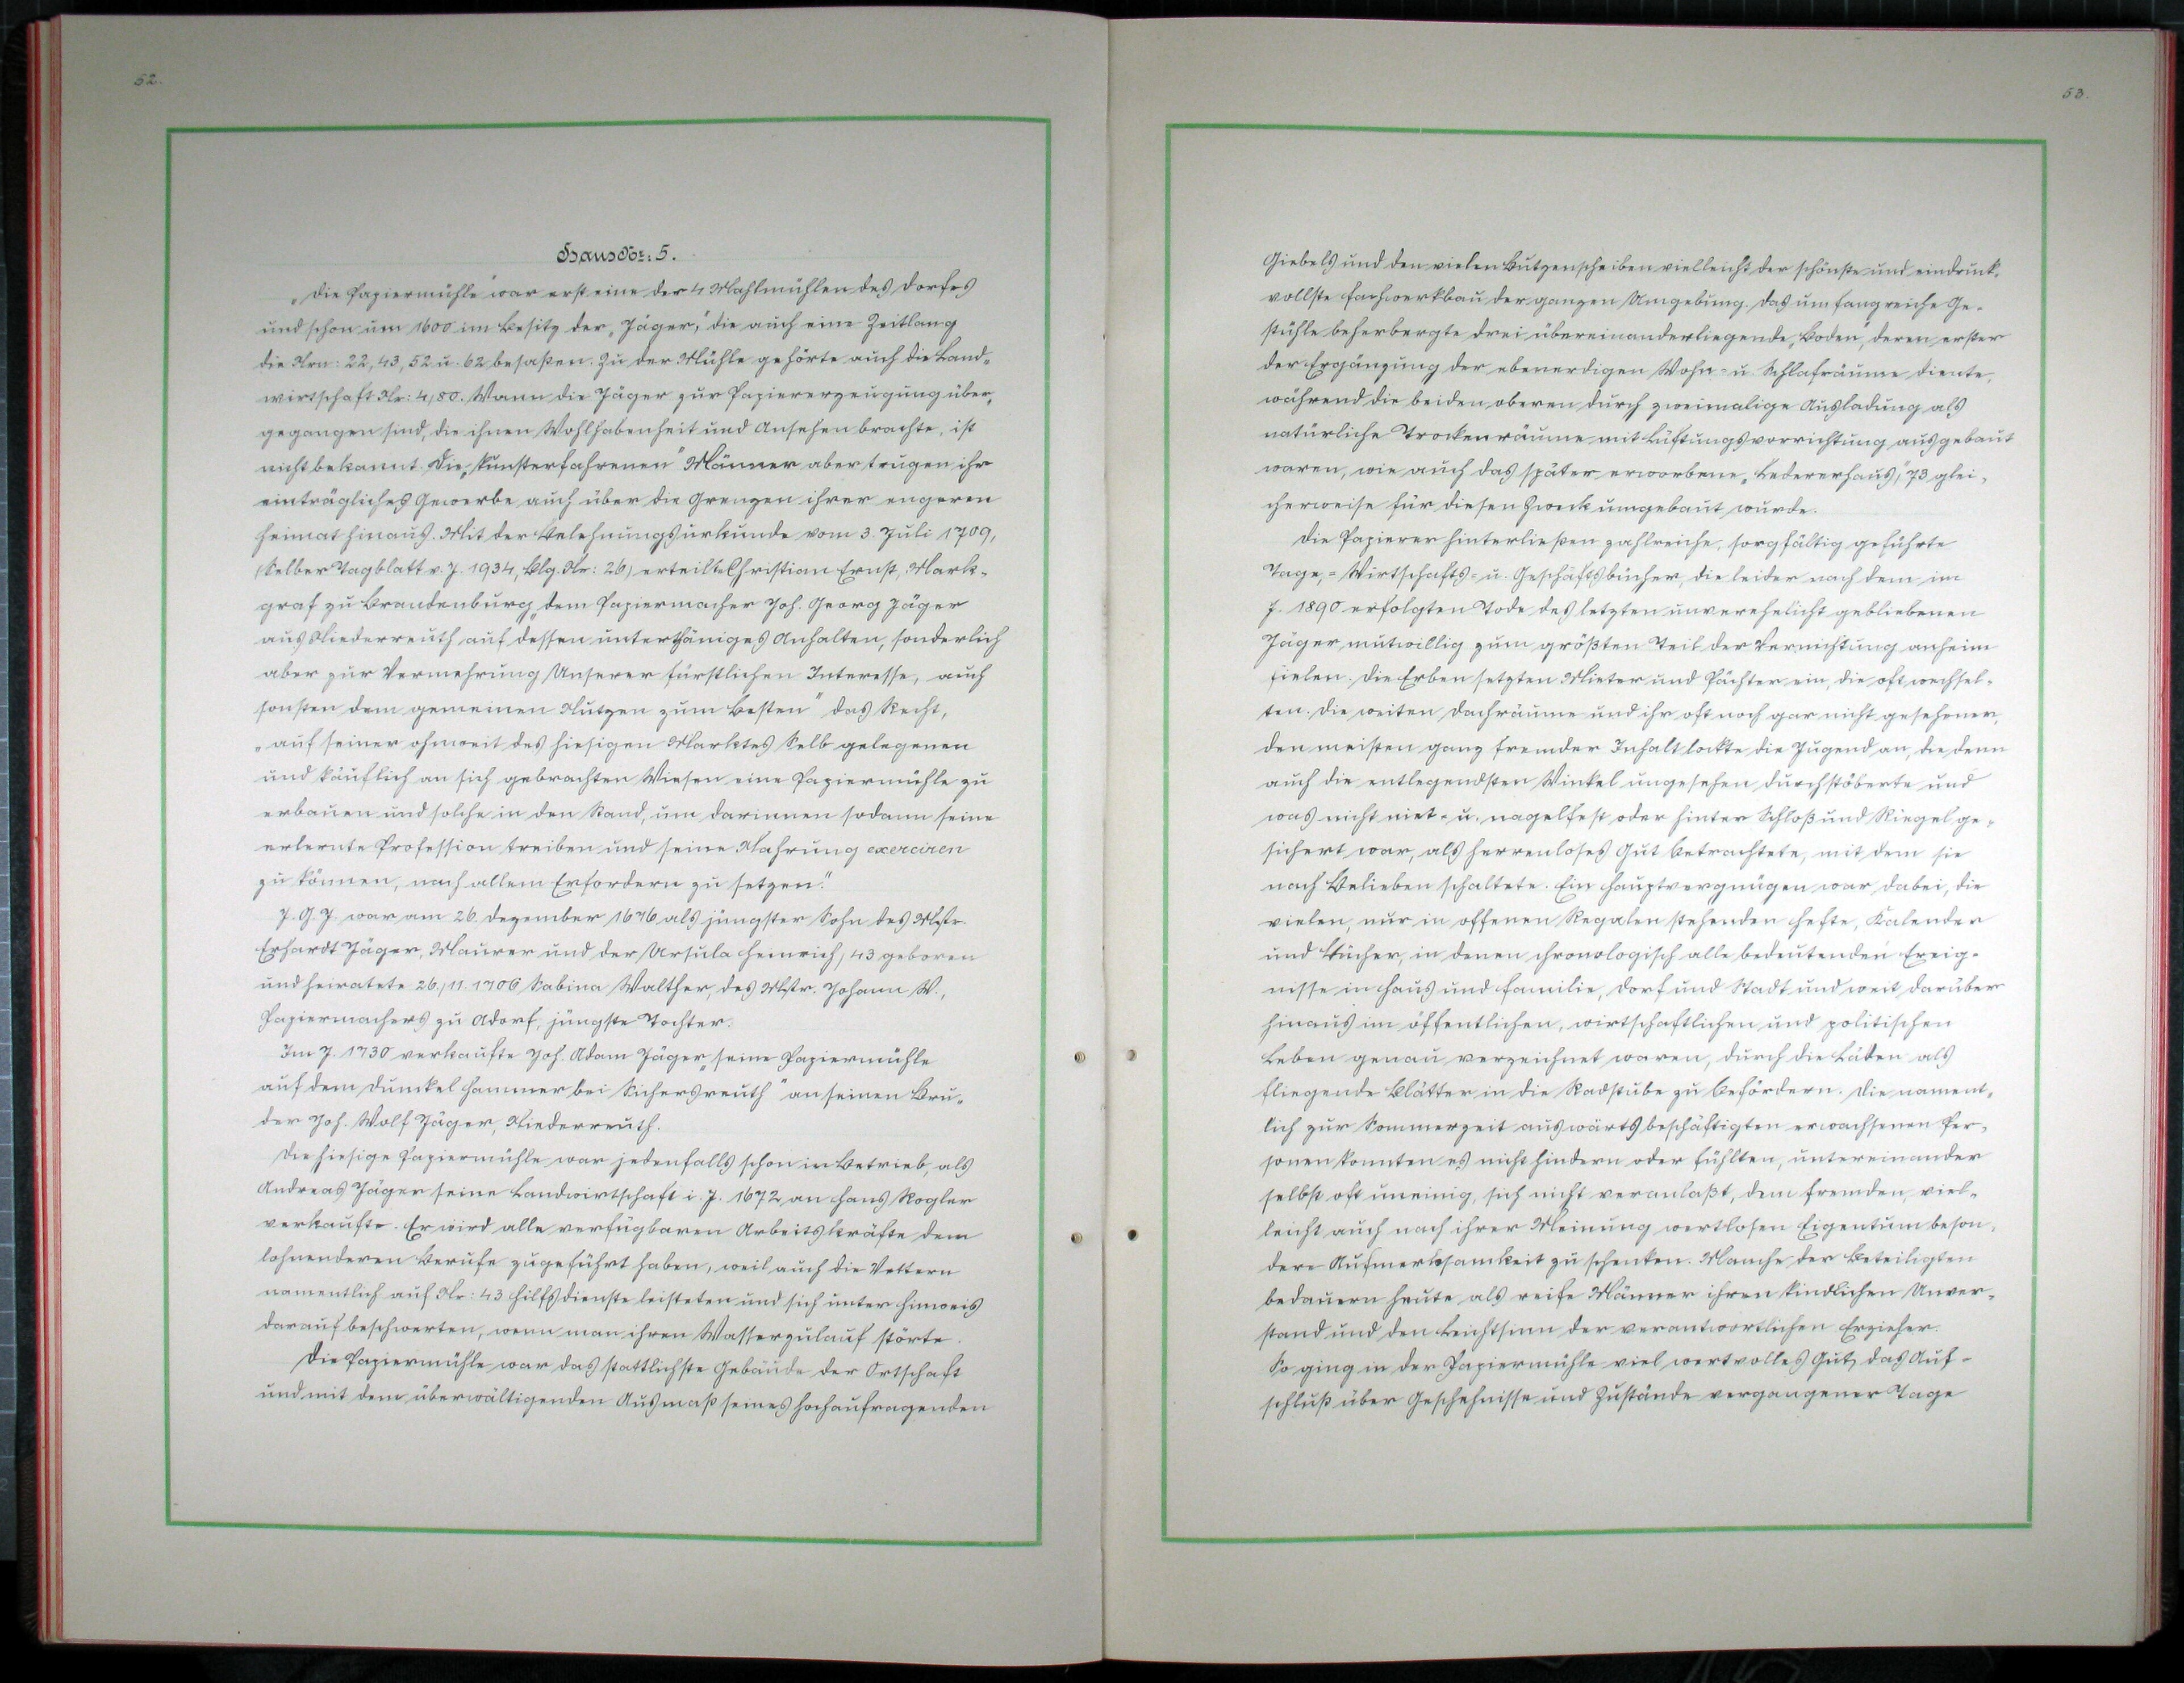 52.
Haus Nr: 5.
„Die Papiermühle" war erst eine der 4 Mahlmühlen des Dorfes
und schon um 1600 im Besitz der „Jäger", die auch eine Zeitlang
die Nrn: 22, 43, 52 u. 62 besaßen. Zu der Mühle gehörte auch die Land-
wirtschaft Nr: 4/80. Wann die Jäger zur Papiererzeugung über-
gegangen sind, die ihnen Wohlhabenheit und Ansehen brachte, ist
nicht bekannt. Die „kunsterfahrenen" Männer aber trugen ihr
einträgliches Gewerbe auch über die Grenzen ihrer engeren
Heimat hinaus. Mit der Belehnungsurkunde vom 3. Juli 1709,
(Selber Tagblatt v. J. 1934, Blg. Nr: 26) erteilte Christian Ernst, Mark-
graf zu Brandenburg „dem Papiermacher Joh. Georg Jäger
aus Niederreuth auf dessen unterthäniges Anhalten, sonderlich
aber zur Vermehrung Unserer fürstlichen Interesse, auch
sonsten dem gemeinen Nutzen zum Besten" das Recht,
„auf seiner ohnweit des hiesigen Marktes Selb gelegenen
und käuflich an sich gebrachten Wiesen eine Papiermühle zu
erbauen und solche in den Stand, um darinnen sodann seine
erlernte Profession treiben und seine Nahrung exerciren
zu können, nach allem Erfordern zu setzen."
J. G. J. war am 26. Dezember 1676 als jüngster Sohn des Mstr.
Erhardt Jäger, Maurer und der Ursula Heinrich, 43 geboren
und heiratete 26./11. 1706 Sabina Walther, des Mstr. Johann W.,
Papiermachers zu Adorf, jüngste Tochter.
Im J. 1730 verkaufte Joh. Adam Jäger „seine Papiermühle
auf dem Dunkelhammer bei Sichersreuth" an seinen Bru-
der Joh. Wolf Jäger, Niederreuth.
Die hiesige Papiermühle war jedenfalls schon in Betrieb, als
Andreas Jäger seine Landwirtschaft i. J. 1672 an Hans Rogler
verkaufte. Er wird alle verfügbaren Arbeitskräfte dem
lohnenderen Berufe zugeführt haben, weil auch die Vettern
namentlich auf Nr: 43 Hilfsdienste leisteten und sich unter Hinweis
darauf beschwerten, wenn man ihren Wasserzulauf störte.
Die Papiermühle war das stattlichste Gebäude der Ortschaft
und mit dem überwältigenden Ausmaß seines hochaufragenden
53.
Giebels und den vielen Butzenscheiben vielleicht der schönste und eindruck-
vollste Fachwerkbau der ganzen Umgebung. Das umfangreiche Ge-
stühle beherbergte drei übereinanderliegende „Boden", deren erster
der Ergänzung der ebenerdigen Wohn- u. Schlafräume diente,
während die beiden oberen durch zweimalige Ausladung als
natürliche Trockenräume mit Lüftungsvorrichtung ausgebaut
waren, wie auch das später erworbene „Ledererhaus", 73 glei-
cherweise für diesen Zweck umgebaut wurde.
Die Papierer hinterließen zahlreiche, sorgfältig geführte
Tage,- Wirtschafts- u. Geschäftsbücher, die leider nach dem im
J. 1890 erfolgten Tode des letzten unverehelicht gebliebenen
Jäger mutwillig zum größten Teil der Vernichtung anheim
fielen. Die Erben setzten Mieter und Pächter ein, die oft wechsel-
ten. Die weiten Dachräume und ihr oft noch gar nicht gesehener,
den meisten ganz fremder Inhalt lockte die Jugend an, die denn
auch die entlegendsten Winkel ungesehen durchstöberte und
was nicht niet- u. nagelfest oder hinter Schloß und Riegel ge-
sichert war, als herrenloses Gut betrachtete, mit dem sie
nach Belieben schaltete. Ein Hauptvergnügen war dabei, die
vielen, nur in offenen Regalen stehenden Hefte, Kalender
und Bücher, in denen chronologisch alle bedeutenden Ereig-
nisse in Haus und Familie, Dorf und Stadt und weit darüber
hinaus im öffentlichen, wirtschaftlichen und politischen
Leben genau verzeichnet waren, durch die Läden als
fliegende Blätter in die Radstube zu befördern. Die nament-
lich zur Sommerzeit auswärts beschäftigten erwachsenen Per-
sonen konnten es nicht hindern oder fühlten, untereinander
selbst oft uneinig, sich nicht veranlaßt, dem fremden, viel-
leicht auch nach ihrer Meinung wertlosen Eigentum beson-
dere Aufmerksamkeit zu schenken. Manche der Beteiligten
bedauern heute als reife Männer ihren kindlichen Unver-
stand und den Leichtsinn der verantwortlichen Erzieher.
So ging in der Papiermühle viel wertvolles Gut, das Auf-
schluß über Geschehnisse und Zustände vergangener Tage